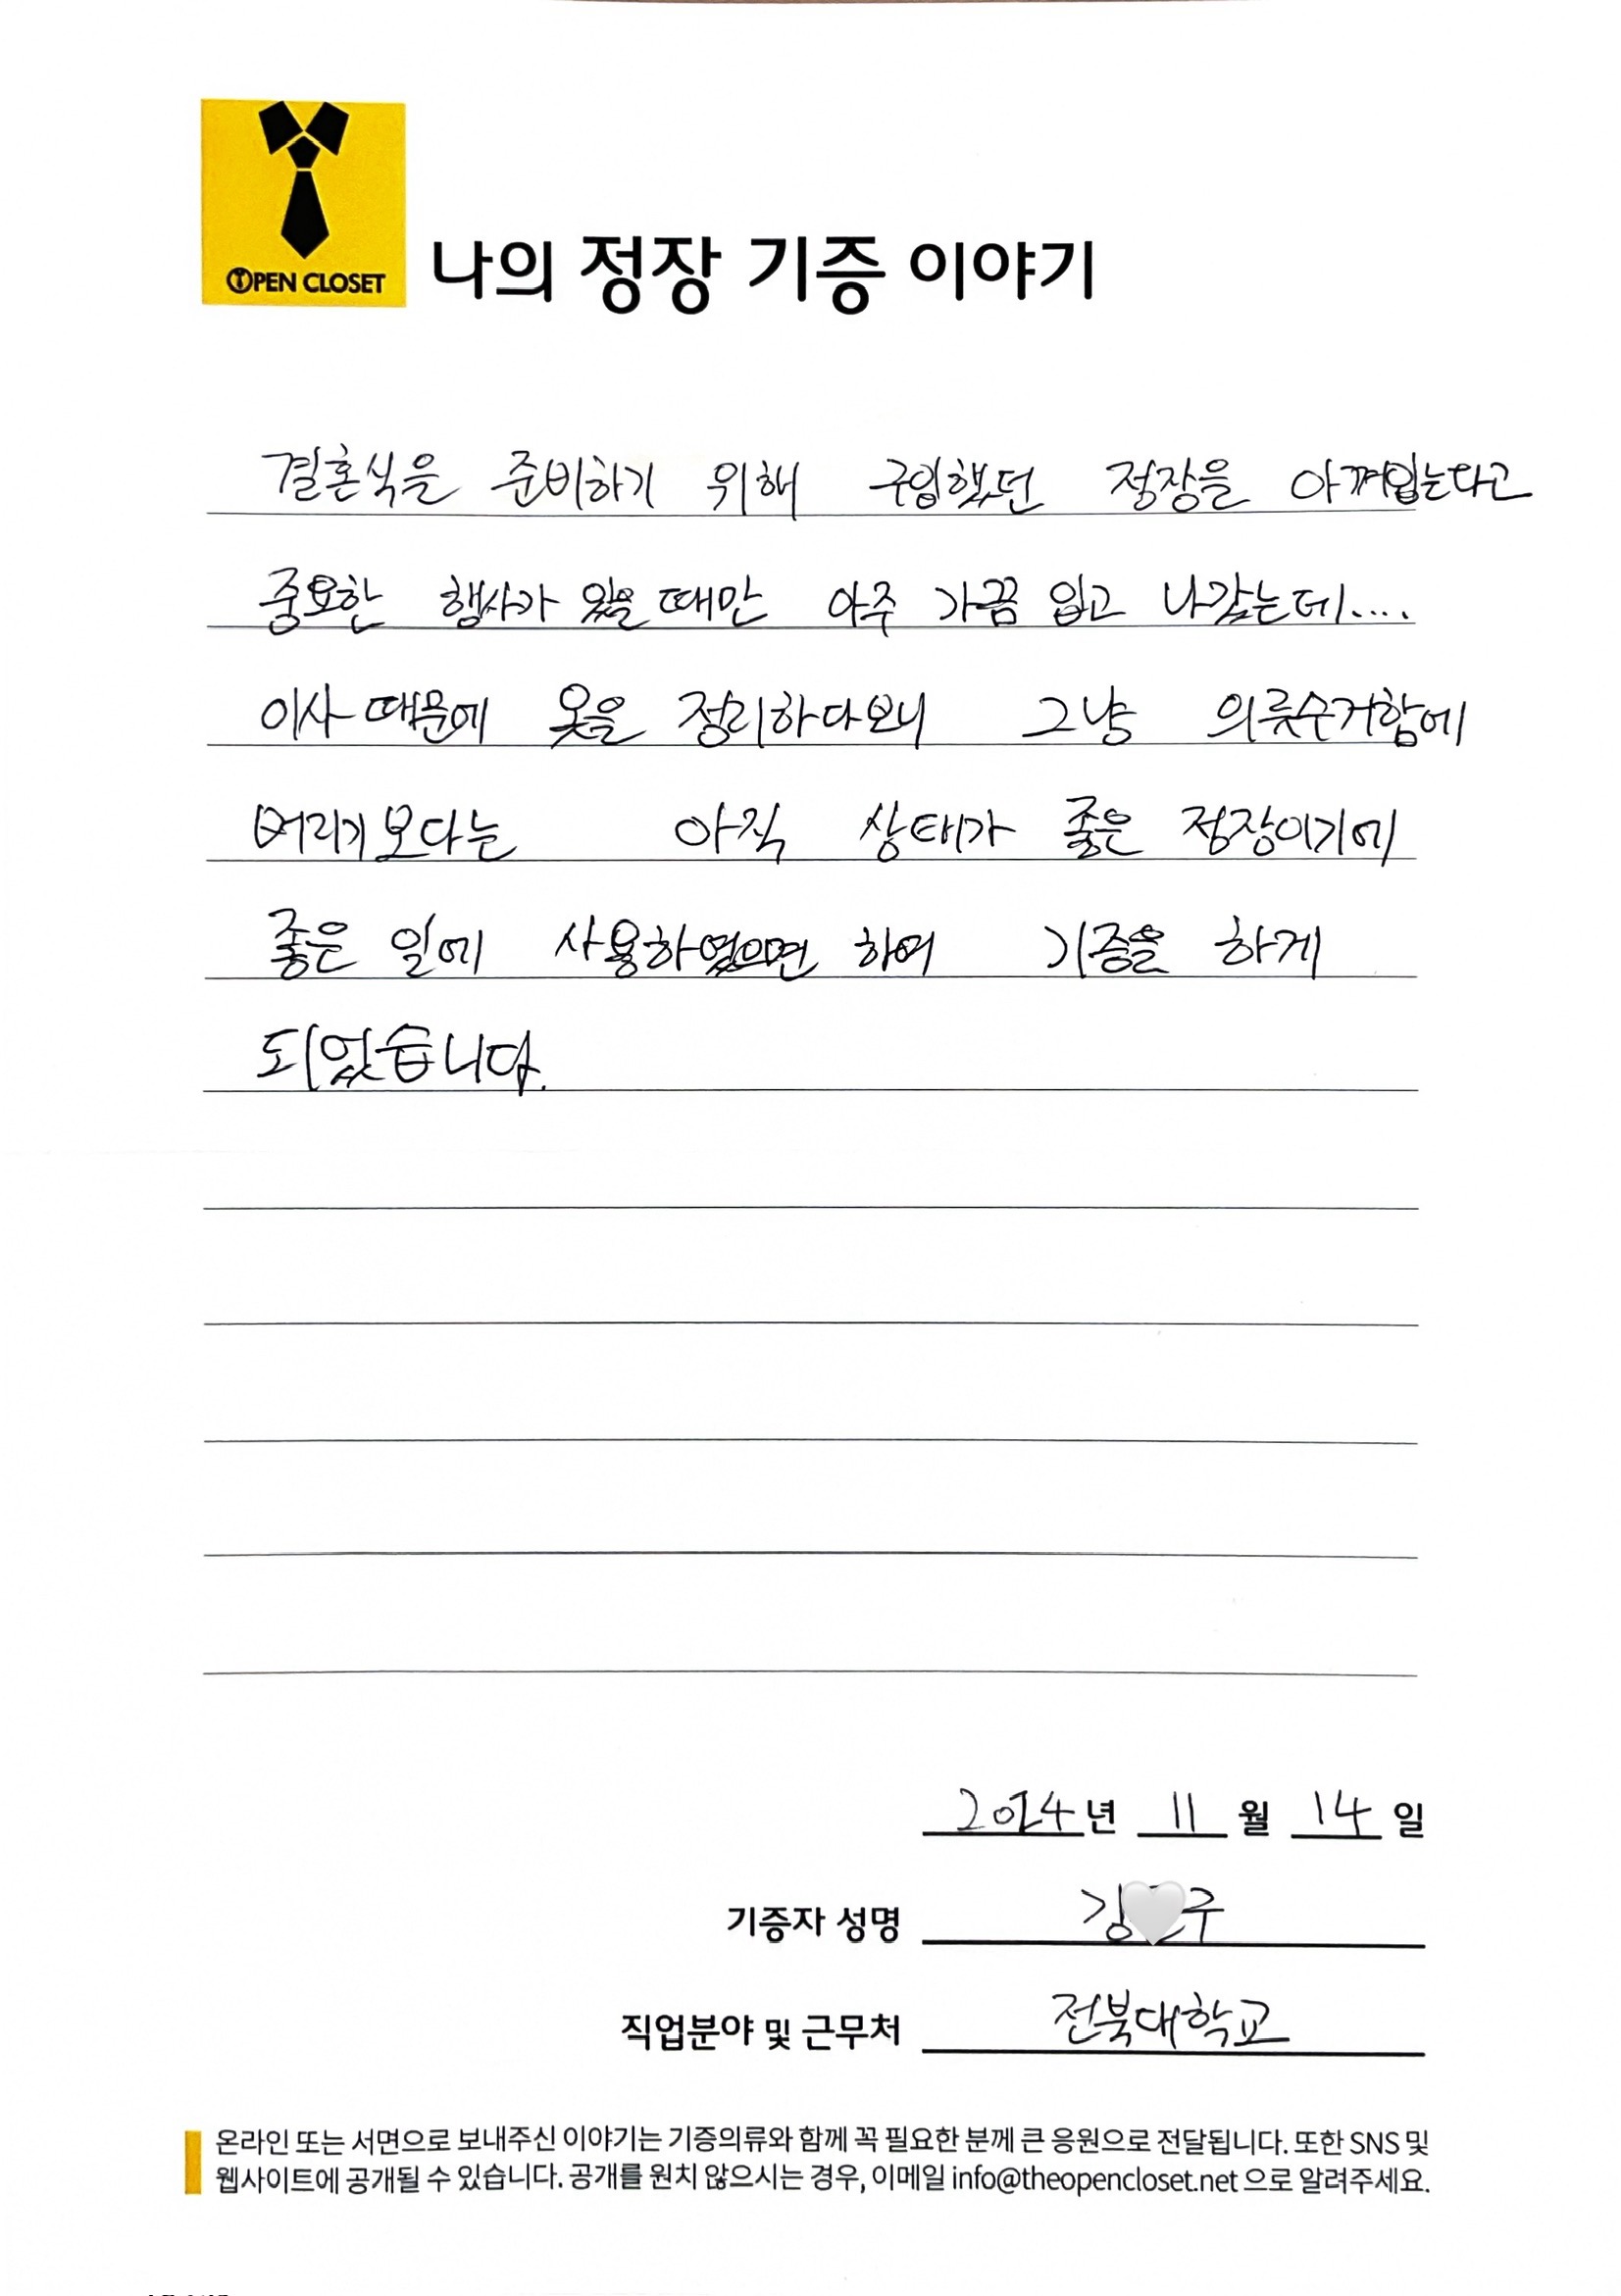 OPEN CLOSET
나의 정장 기증 이야기
결혼식을 준비하기 위해 구입했던 정장을 아껴입는다고
중요한 행사가 있을 때만 아주 가끔 입고 나갔는데....
이사 때문에 옷을 정리하다보니 그냥 의륫수거함에
버리기 보다는 아직 상태가 좋은 정장이기에
좋은 일에 사용하였으면 하여 기증을 하게
되었습니다.
2024년 11월 14일
기증자 성명 김 주
직업분야 및 근무처 전북대학교
온라인 또는 서면으로 보내주신 이야기는 기증의류와 함께 꼭 필요한 분께 큰 응원으로 전달됩니다. 또한 SNS 및
웹사이트에 공개될 수 있습니다. 공개를 원치 않으시는 경우, 이메일 info@theopencloset.net 으로 알려주세요.